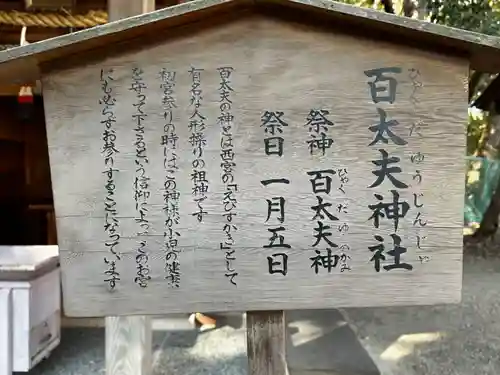 百太夫神社
ひゃくだゆうじんじゃ
祭神 百太夫神
ひゃくだゆうのかみ
祭日 一月五日
「百太夫の神とは西宮の「えびすかき」として
有名な人形操りの祖神です
初宮参りの時にはこの神様が小児の健康
を守って下さるという信仰によってこのお宮
にも必らずお参りすることになっています